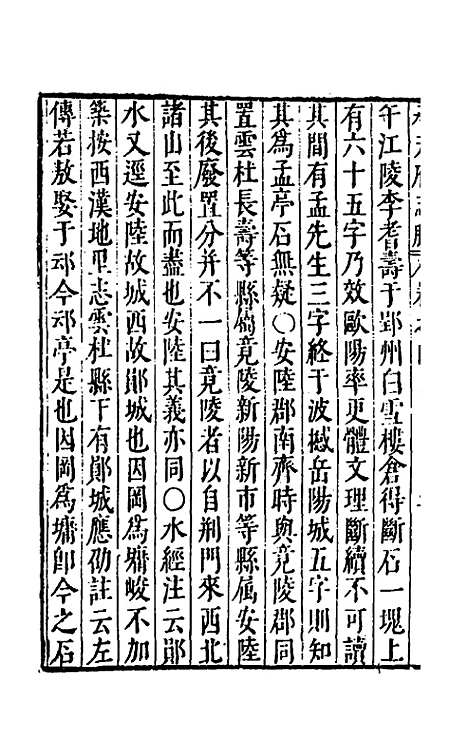 年江陵李耆壽于郢州白雪樓倉得斷石一塊上
有六十五字乃效歐陽率更體文理斷續不可讀
其間有孟先生三字終于波撼岳陽城五字則知
其爲孟亭石無疑〇安陸郡南齊時與竟陵郡同
置雲杜長壽等縣屬竟陵新陽新市等縣属安陸
其後廢置分并不一曰竟陵者以自荆門來西北
諸山至此而盡也安陸其義亦同〇水經注云鄖
水又逕安陸故城西故鄖城也因岡爲墉峻不加
築按西漢地里志雲杜縣下有鄖城應劭註云左
傳若敖娶于䢵今䢵亭是也因岡爲墉卽今之石